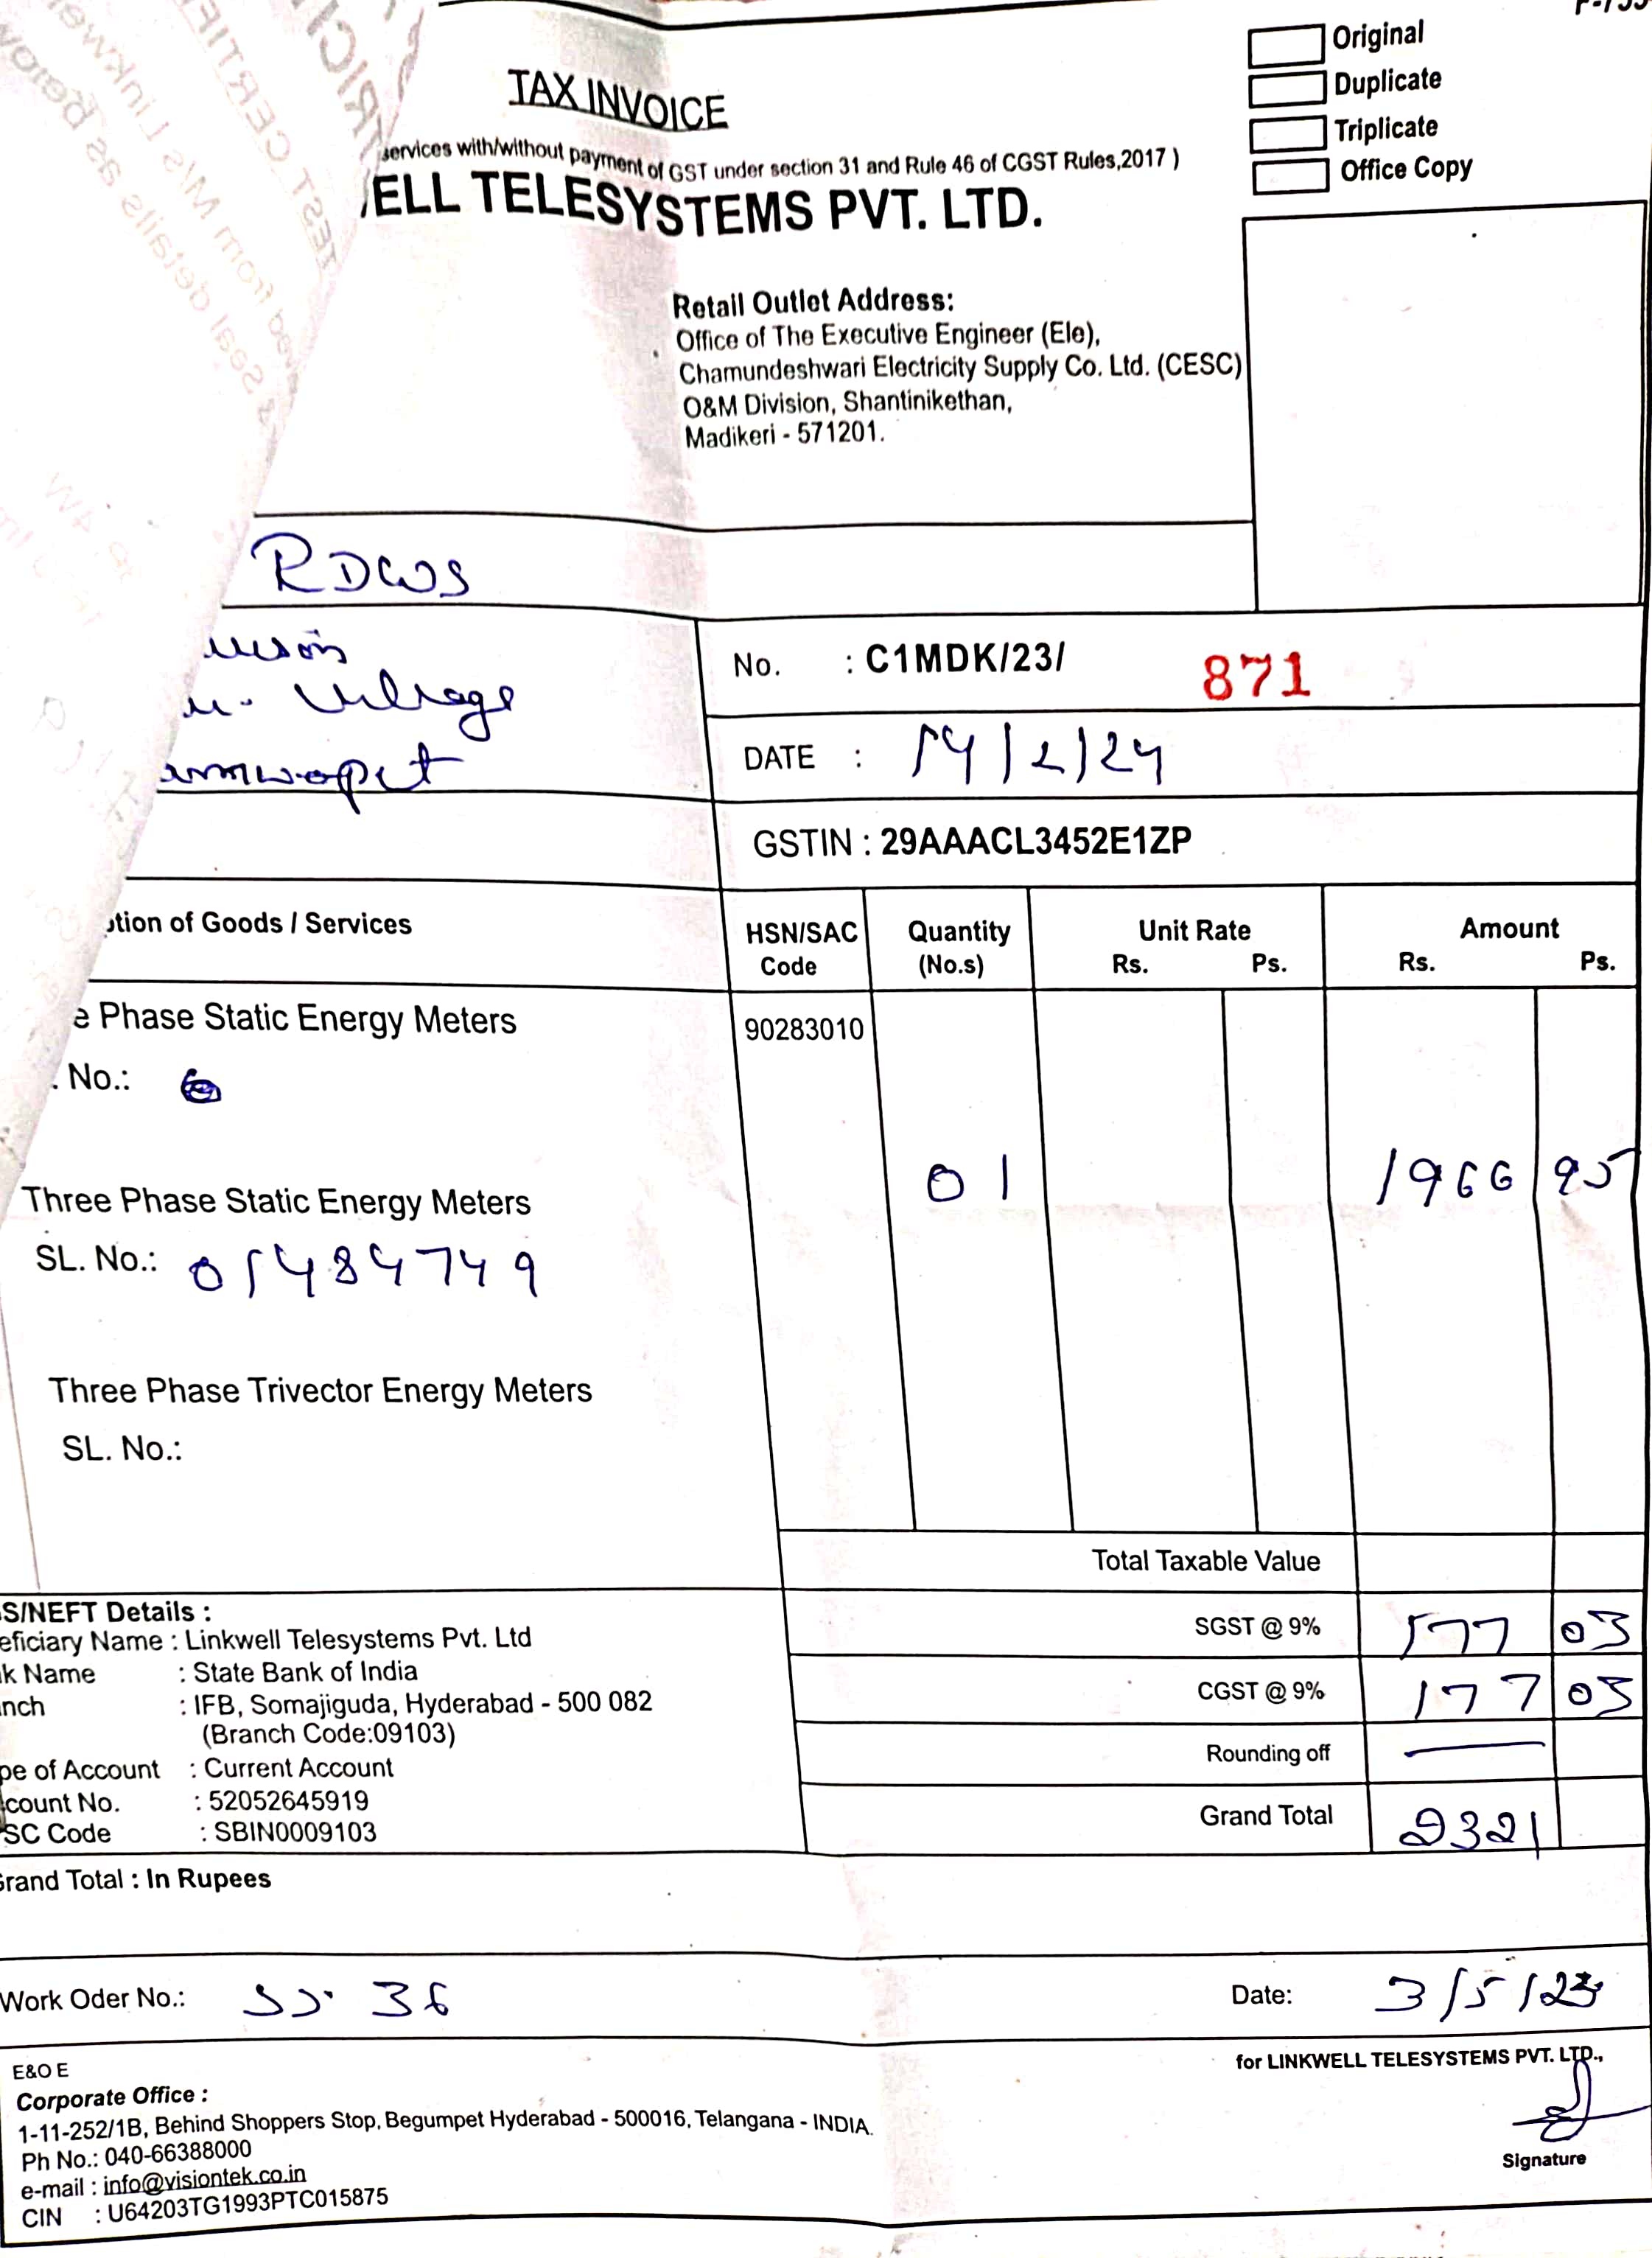 Original
Duplicate
Triplicate
Office Copy
TAX INVOICE
services with/without payment of GST under section 31 and Rule 46 of CGST Rules,2017 )
ELL TELESYSTEMS PVT. LTD.
Retail Outlet Address:
Office of The Executive Engineer (Ele),
Chamundeshwari Electricity Supply Co. Ltd. (CESC)
O&M Division, Shantinikethan,
Madikeri - 571201.
RDWS
Village
No. : C1MDK/23/ 871
DATE : 14/2/24
GSTIN : 29AAACL3452E1ZP
tion of Goods / Services
HSN/SAC Code
Quantity (No.s)
Unit Rate Rs. Ps.
Amount Rs. Ps.
e Phase Static Energy Meters 90283010
. No.:
Three Phase Static Energy Meters 01 1966 95
SL. No.: 01484749
Three Phase Trivector Energy Meters
SL. No.:
Total Taxable Value
SGST @ 9% 177 03
CGST @ 9% 177 03
Rounding off —
Grand Total 2321
S/NEFT Details :
eficiary Name : Linkwell Telesystems Pvt. Ltd
k Name : State Bank of India
nch : IFB, Somajiguda, Hyderabad - 500 082
(Branch Code:09103)
pe of Account : Current Account
count No. : 52052645919
SC Code : SBIN0009103
Grand Total : In Rupees
Work Oder No.: 36 Date: 3/5/23
for LINKWELL TELESYSTEMS PVT. LTD.,
E&O E
Corporate Office :
1-11-252/1B, Behind Shoppers Stop, Begumpet Hyderabad - 500016, Telangana - INDIA.
Ph No.: 040-66388000
e-mail : info@visiontek.co.in
CIN : U64203TG1993PTC015875
Signature